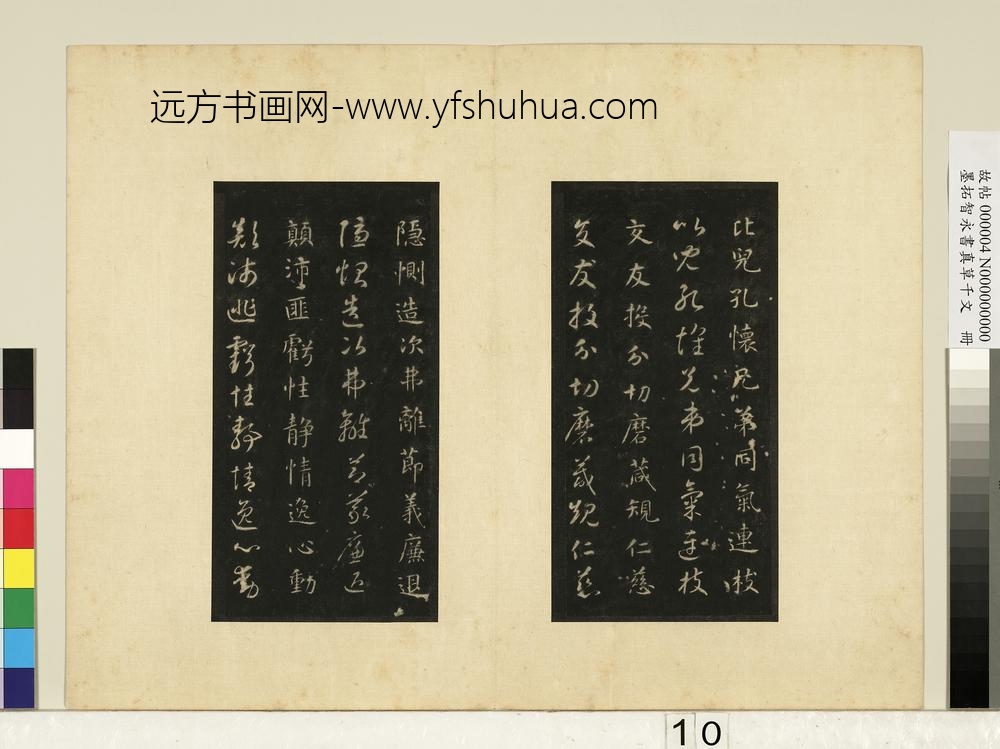 远方书画网-www.yfshuhua.com
比兒孔懷兄弟同氣連枝
比兒孔懷兄弟同氣連枝
交友投分切磨箴規仁慈
交友投分切磨箴規仁慈
隱惻造次弗離節義廉退
隱惻造次弗離節義廉退
顛沛匪虧性靜情逸心動
顛沛匪虧性靜情逸心動
故帖 000004 N000000000
墨拓智永書真草千文 冊
10